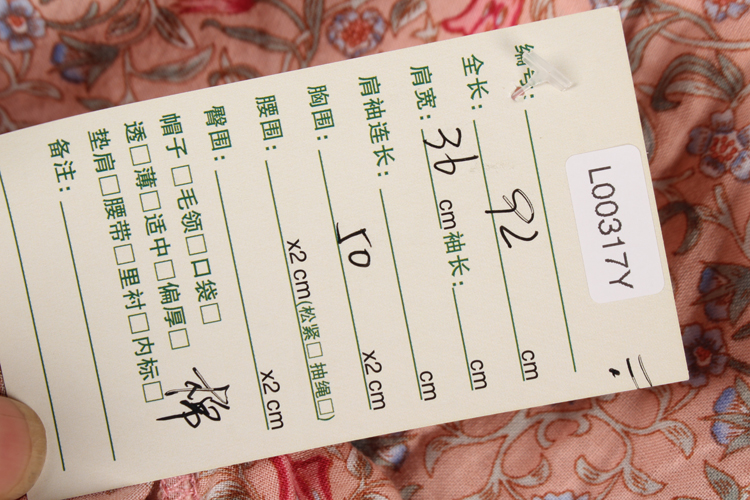 L00317Y
编号:
全长: 92 cm
肩宽: 36 cm 袖长: cm
肩袖连长: cm
胸围: 50 x2 cm
腰围: x2 cm(松紧□ 抽绳□)
臀围: x2 cm
帽子□毛领□口袋□
透□薄□适中□偏厚□
垫肩□腰带□里衬□内标□
棉
备注: